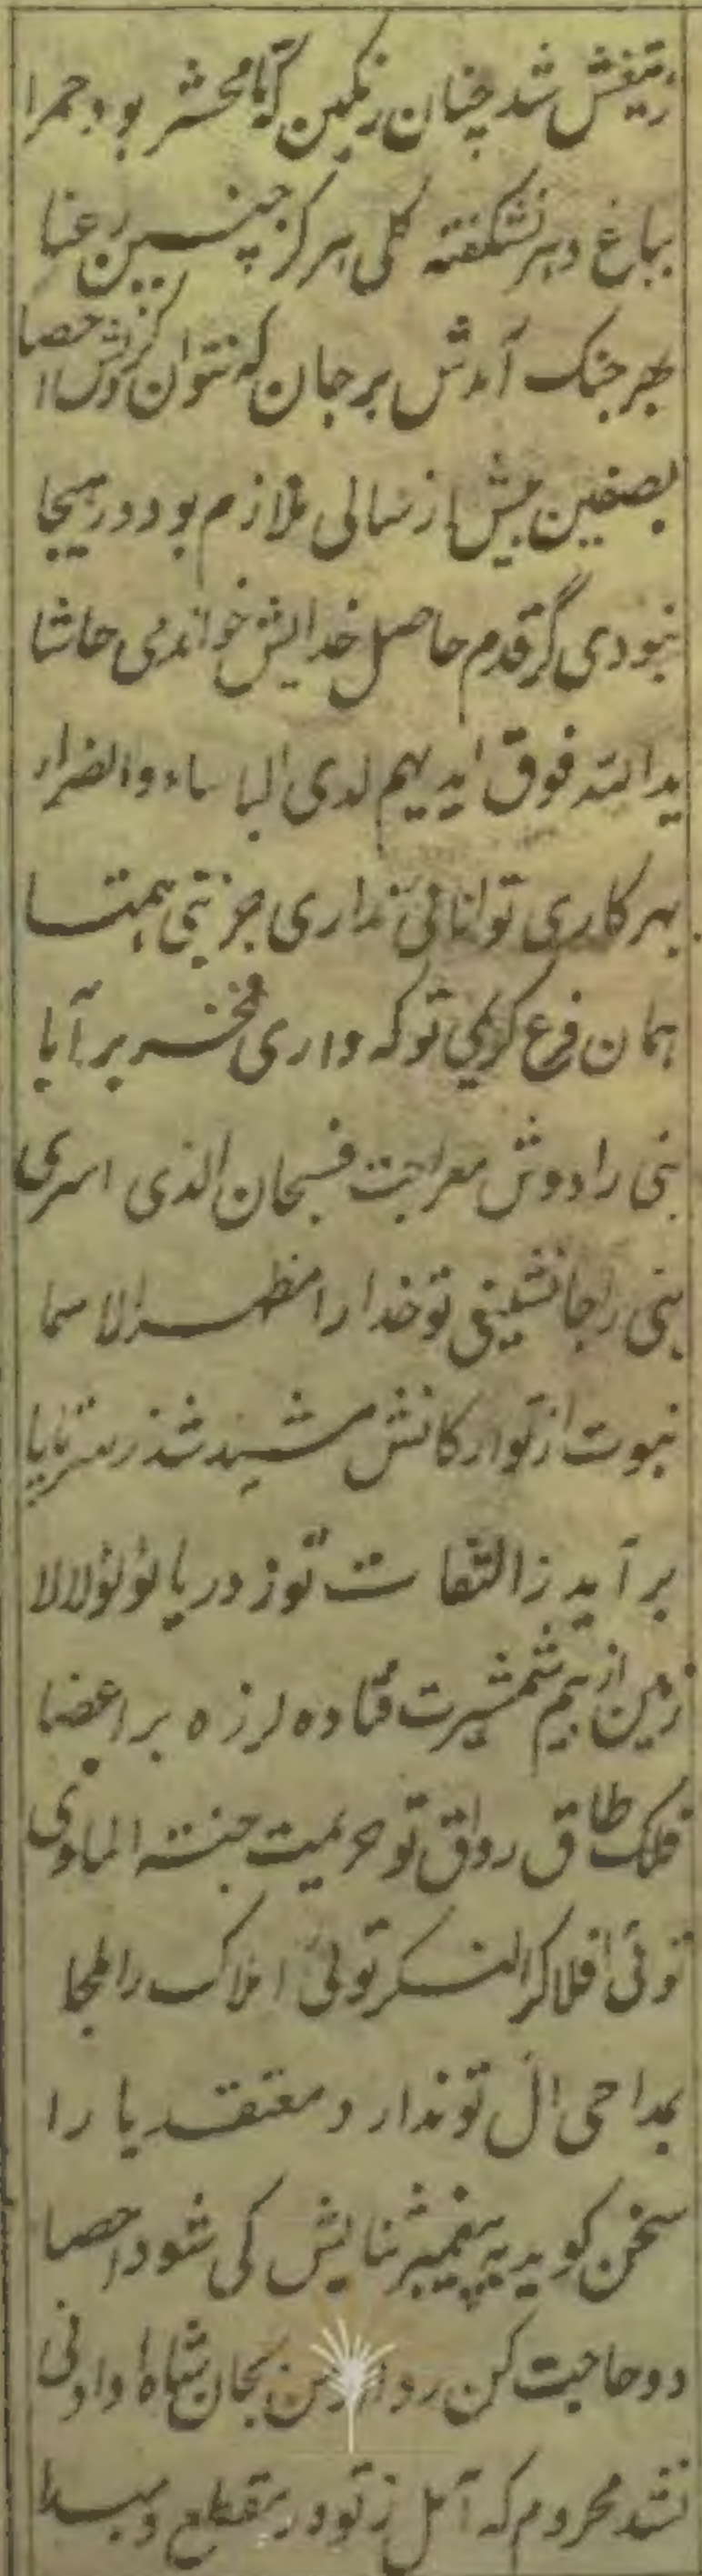 ز تیغش شد چنان رنگین که تا محشر بود حمرا
بباغ دهر نشکفته گلی هرگز چنین رعنا
بهر جنک آمدش بر جان که نتوان کردنش احصا
بصفین بیش از سالی ملازم بود در هیجا
نبودی گر قدم حاصل خدایش خواندمی حاشا
یدالله فوق ایدیهم لدی الباساء والضراء
بهر کاری توانائی نداری جز نبی همتا
همان فرع کریمی تو که داری فخر بر آبا
نبی را دوش معراجت فسبحان الذی اسری
نبی را جانشینی تو خدا را مظهر الاسما
نبوت از تو ارکانش مشید شد ز سر تا پا
بر آید ز التفات تو ز دریا لؤلؤ لالا
زمین از بیم شمشیرت فتاده لرزه بر اعضا
فلک طاق رواق تو حریمت جنته الماوی
توئی افلاکرا لنکر توئی املاک را ملجا
بمداحی ال تو ندارد معتقد یارا
سخن کوید به پیغمبر ثنایش کی شود احصا
دو حاجت کن روا از من بجان شاه او ادنی
نشد محروم که آمل ز تو در مقطع و مبدا